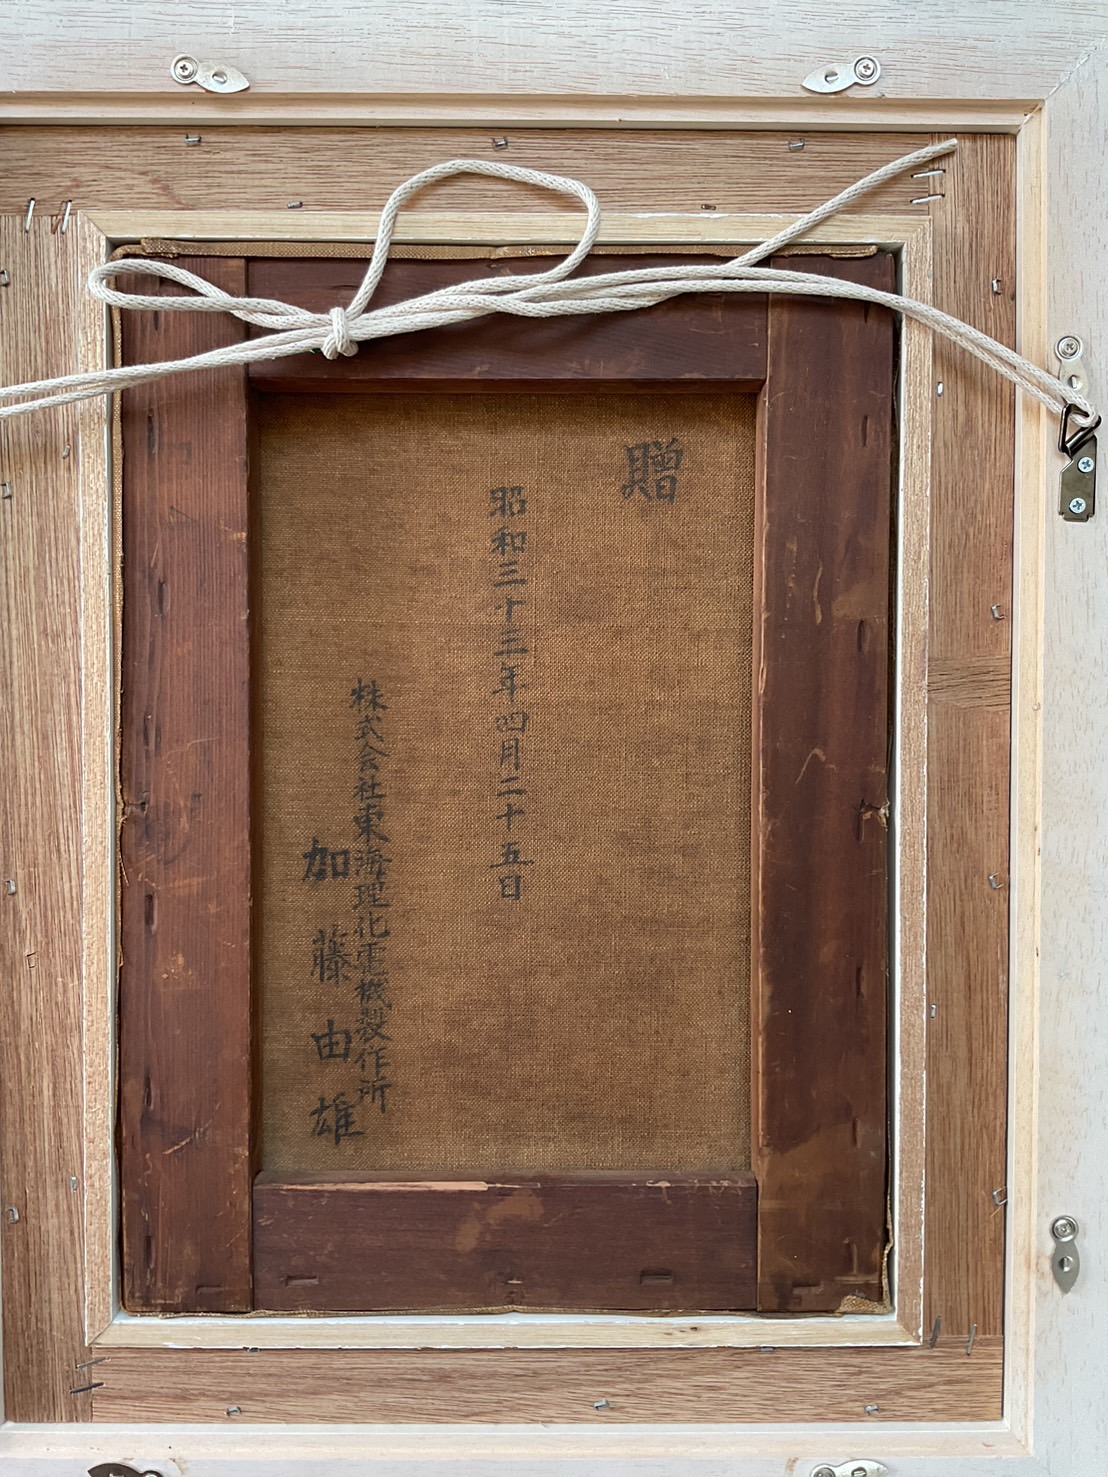 贈
昭和三十三年四月二十五日
株式会社東海理化電機製作所
加藤由雄